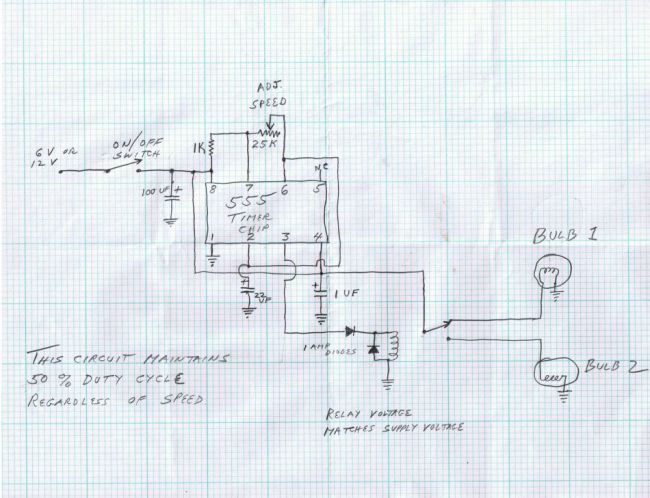 ADJ.
SPEED
6V OR
12V
ON/OFF
SWITCH
1K
25K
N.C
100 UF +
8 7 6 5
555
TIMER
CHIP
1 2 3 4
+
+
1 UF
BULB 1
1 AMP
DIODES
BULB 2
THIS CIRCUIT MAINTAINS
50 % DUTY CYCLE
REGARDLESS OF SPEED
RELAY VOLTAGE
MATCHES SUPPLY VOLTAGE